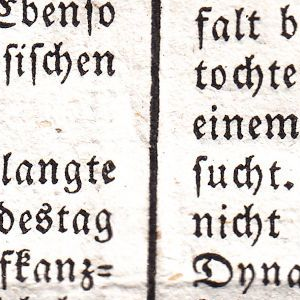 Ebenſo
ſiſchen
langte
destag
fkanz=
falt b
tochte
einem
ſucht.
nicht
Dyna